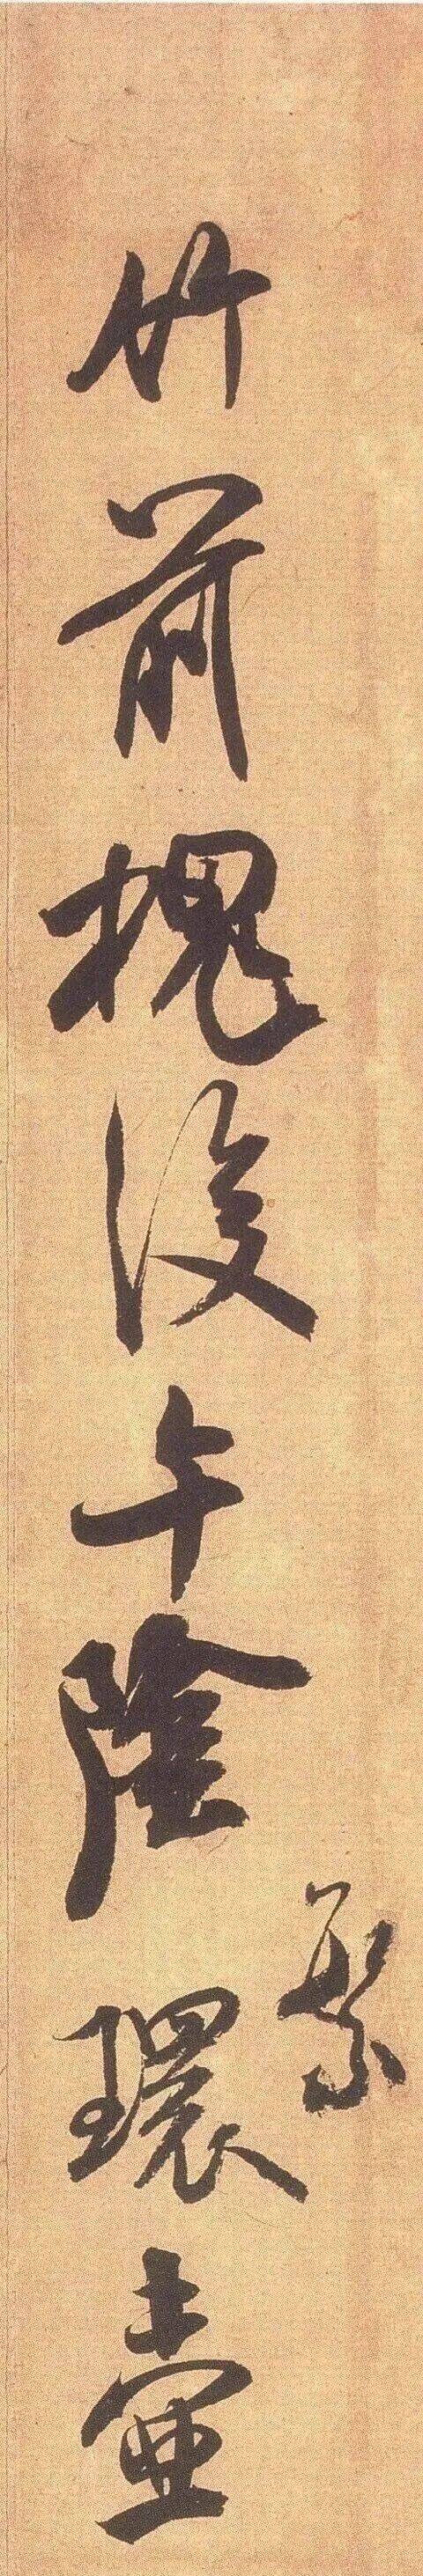 竹前槐後午陰環壺
繁